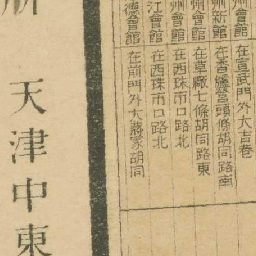 州會館 在宣武門外大吉巷
州新館 在香爐營頭條胡同路南
州會館 在草廠七條胡同路東
州會館 在西珠市口路北
江會館 在西珠市口路北
德會館 在前門外大蔣家胡同
天津中東